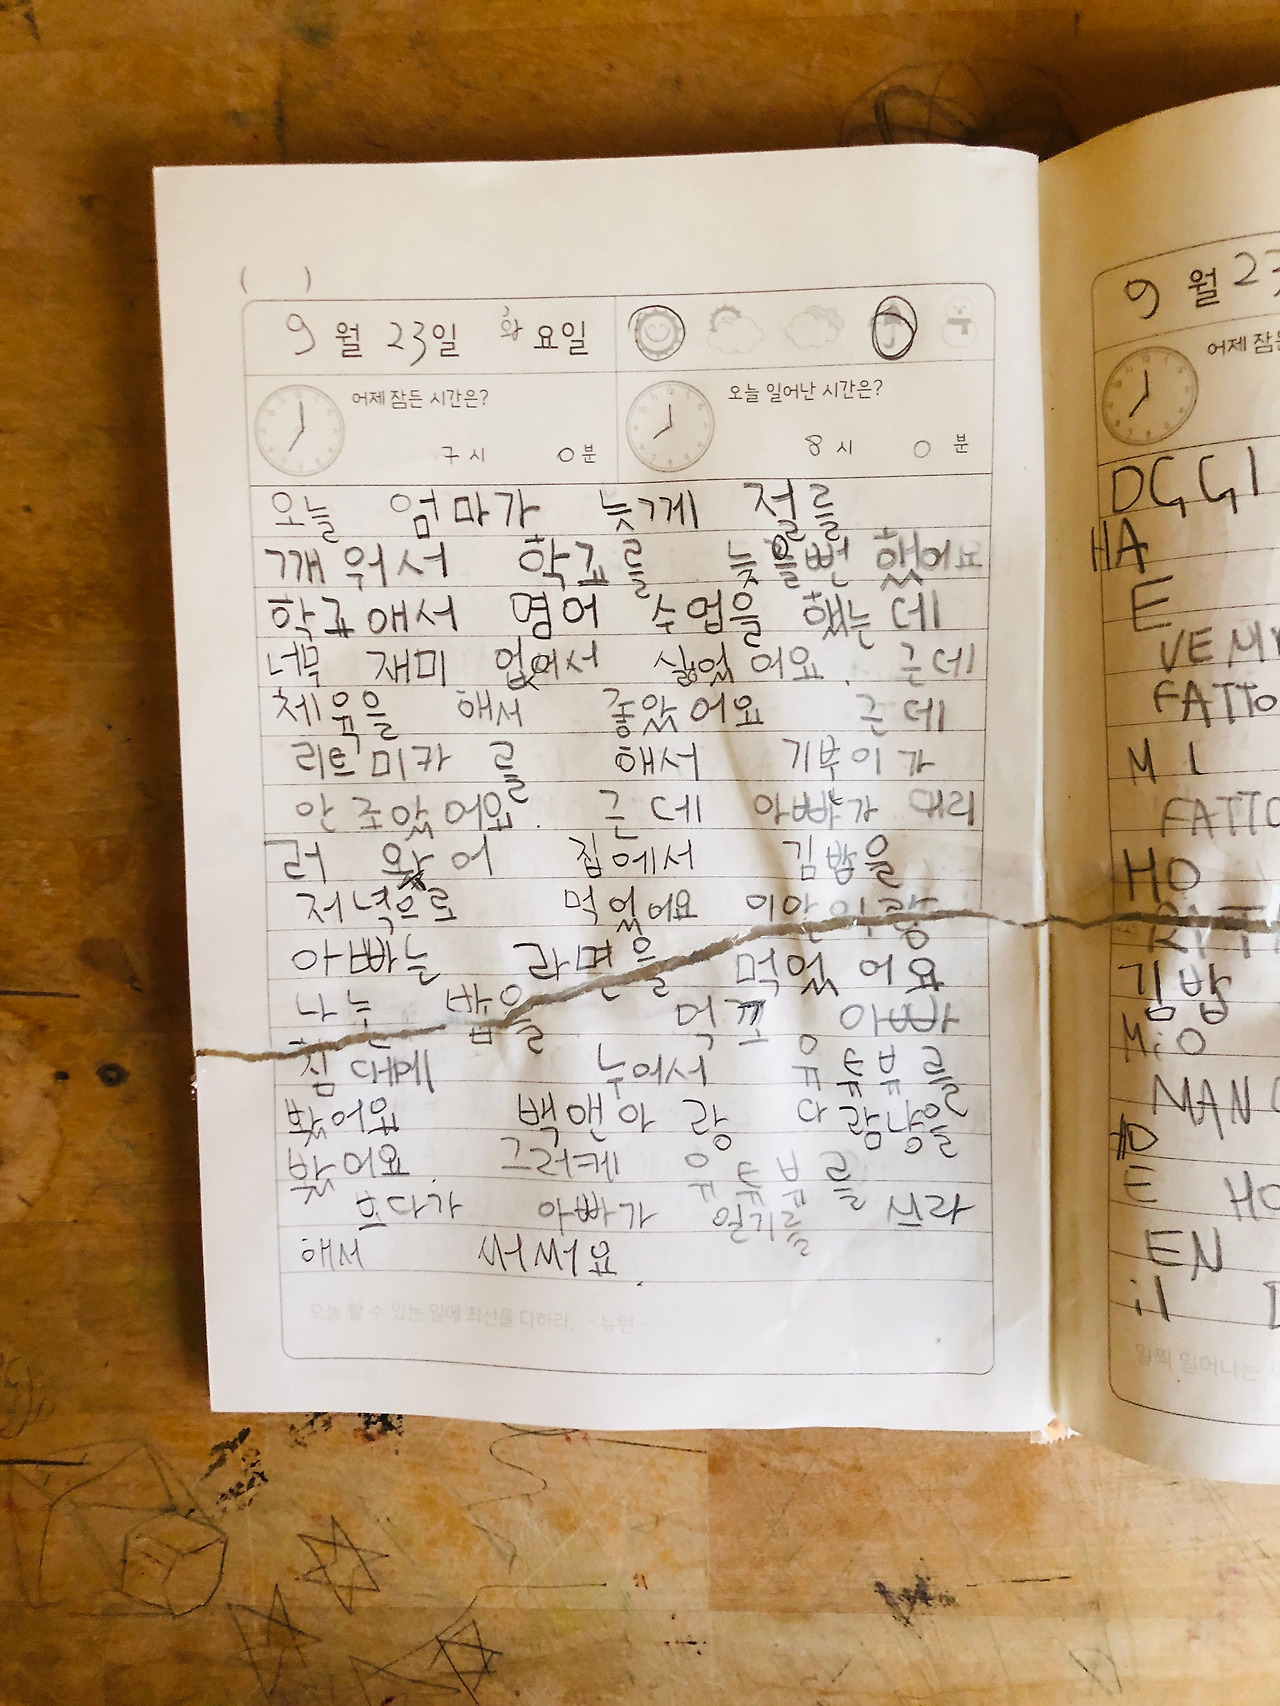 ( )
9월 23일 화요일
어제 잠든 시간은?
7시 0분
오늘 일어난 시간은?
8시 0분
오늘 엄마가 늦게 절를
깨워서 학교를 늦을뻔 했어요
학교애서 영어 수업을 했는데
너무 재미 없어서 싫었어요. 근데
체육을 해서 좋았어요 근데
리트미카를 해서 기부이가
안 조았어요. 근데 아빠가 대리
러 왔어 집에서 김밥을
저녁으로 먹었어요 이안이랑
아빠는 라면을 먹었어요
나는 밥을 먹고 아빠
침대에 누어서 유튜뷰를
봤어요 백앤아랑 다람냥을
봤어요 그러케 유튜뷰를
보다가 아빠가 일기를 쓰라
해서 써써요.
오늘 할 수 있는 일에 최선을 다하라. - 뉴턴 -
9월 23
어제 잠든
OGGI
HA
E
VE MY
FATTO
MI
FATTO
HO
김밥
MiO
MAN
HO
E HO
EN
il
일찍 일어나는